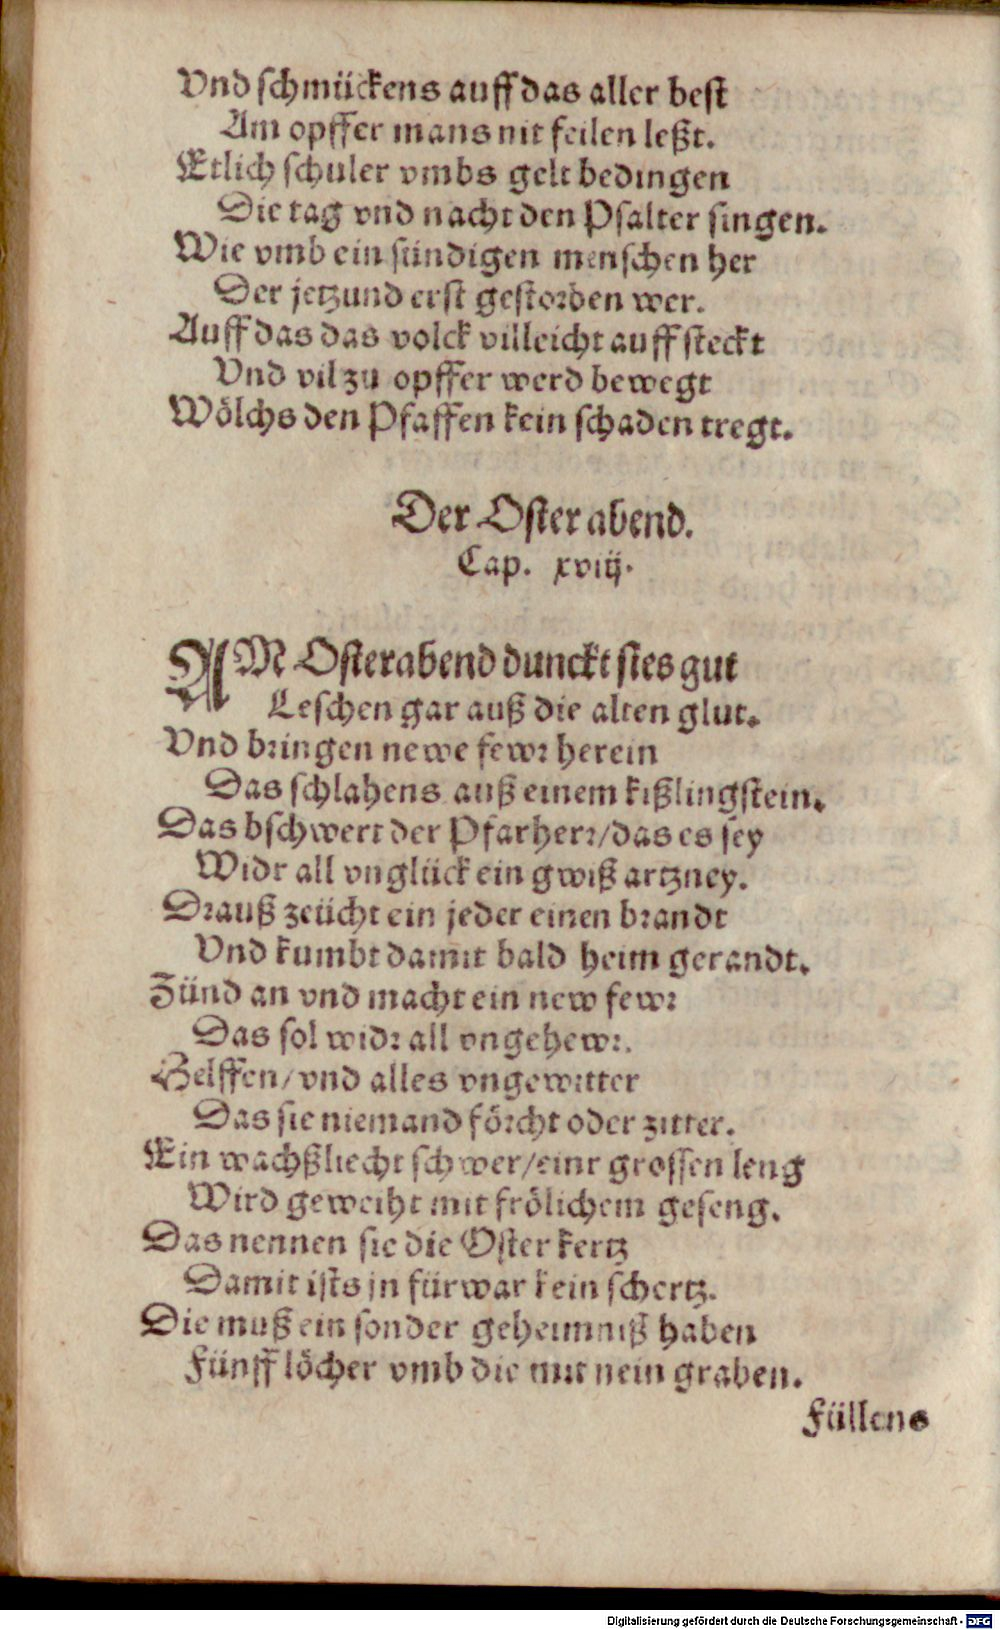 Vnd schmückens auff das aller best
Am opffer mans nit feilen leßt.
Etlich schuler vmbs gelt bedingen
Die tag vnd nacht den Psalter singen.
Wie vmb ein sündigen menschen her
Der jetzund erst gestorben wer.
Auff das das volck villeicht auff steckt
Vnd vil zu opffer werd bewegt
Wölchs den Pfaffen kein schaden tregt.
Der Oster abend.
Cap. xviij.
AM Osterabend dunckt sies gut
Leschen gar auß die alten glut.
Vnd bringen newe fewr herein
Das schlahens auß einem kißlingstein.
Das bschwert der Pfarherr/das es sey
Widr all vnglück ein gwiß artzney.
Drauß zeücht ein jeder einen brandt
Vnd kumbt damit bald heim gerandt.
Zünd an vnd macht ein new fewr
Das sol widr all vngehewr.
Helffen/vnd alles vngewitter
Das sie niemand förcht oder zitter.
Ein wachßliecht schwer/einr grossen leng
Wird geweiht mit frölichem geseng.
Das nennen sie die Oster kertz
Damit ists jn fürwar kein schertz.
Die muß ein sonder geheimniß haben
Fünff löcher vmb die mit nein graben.
Füllens
Digitalisierung gefördert durch die Deutsche Forschungsgemeinschaft - DFG